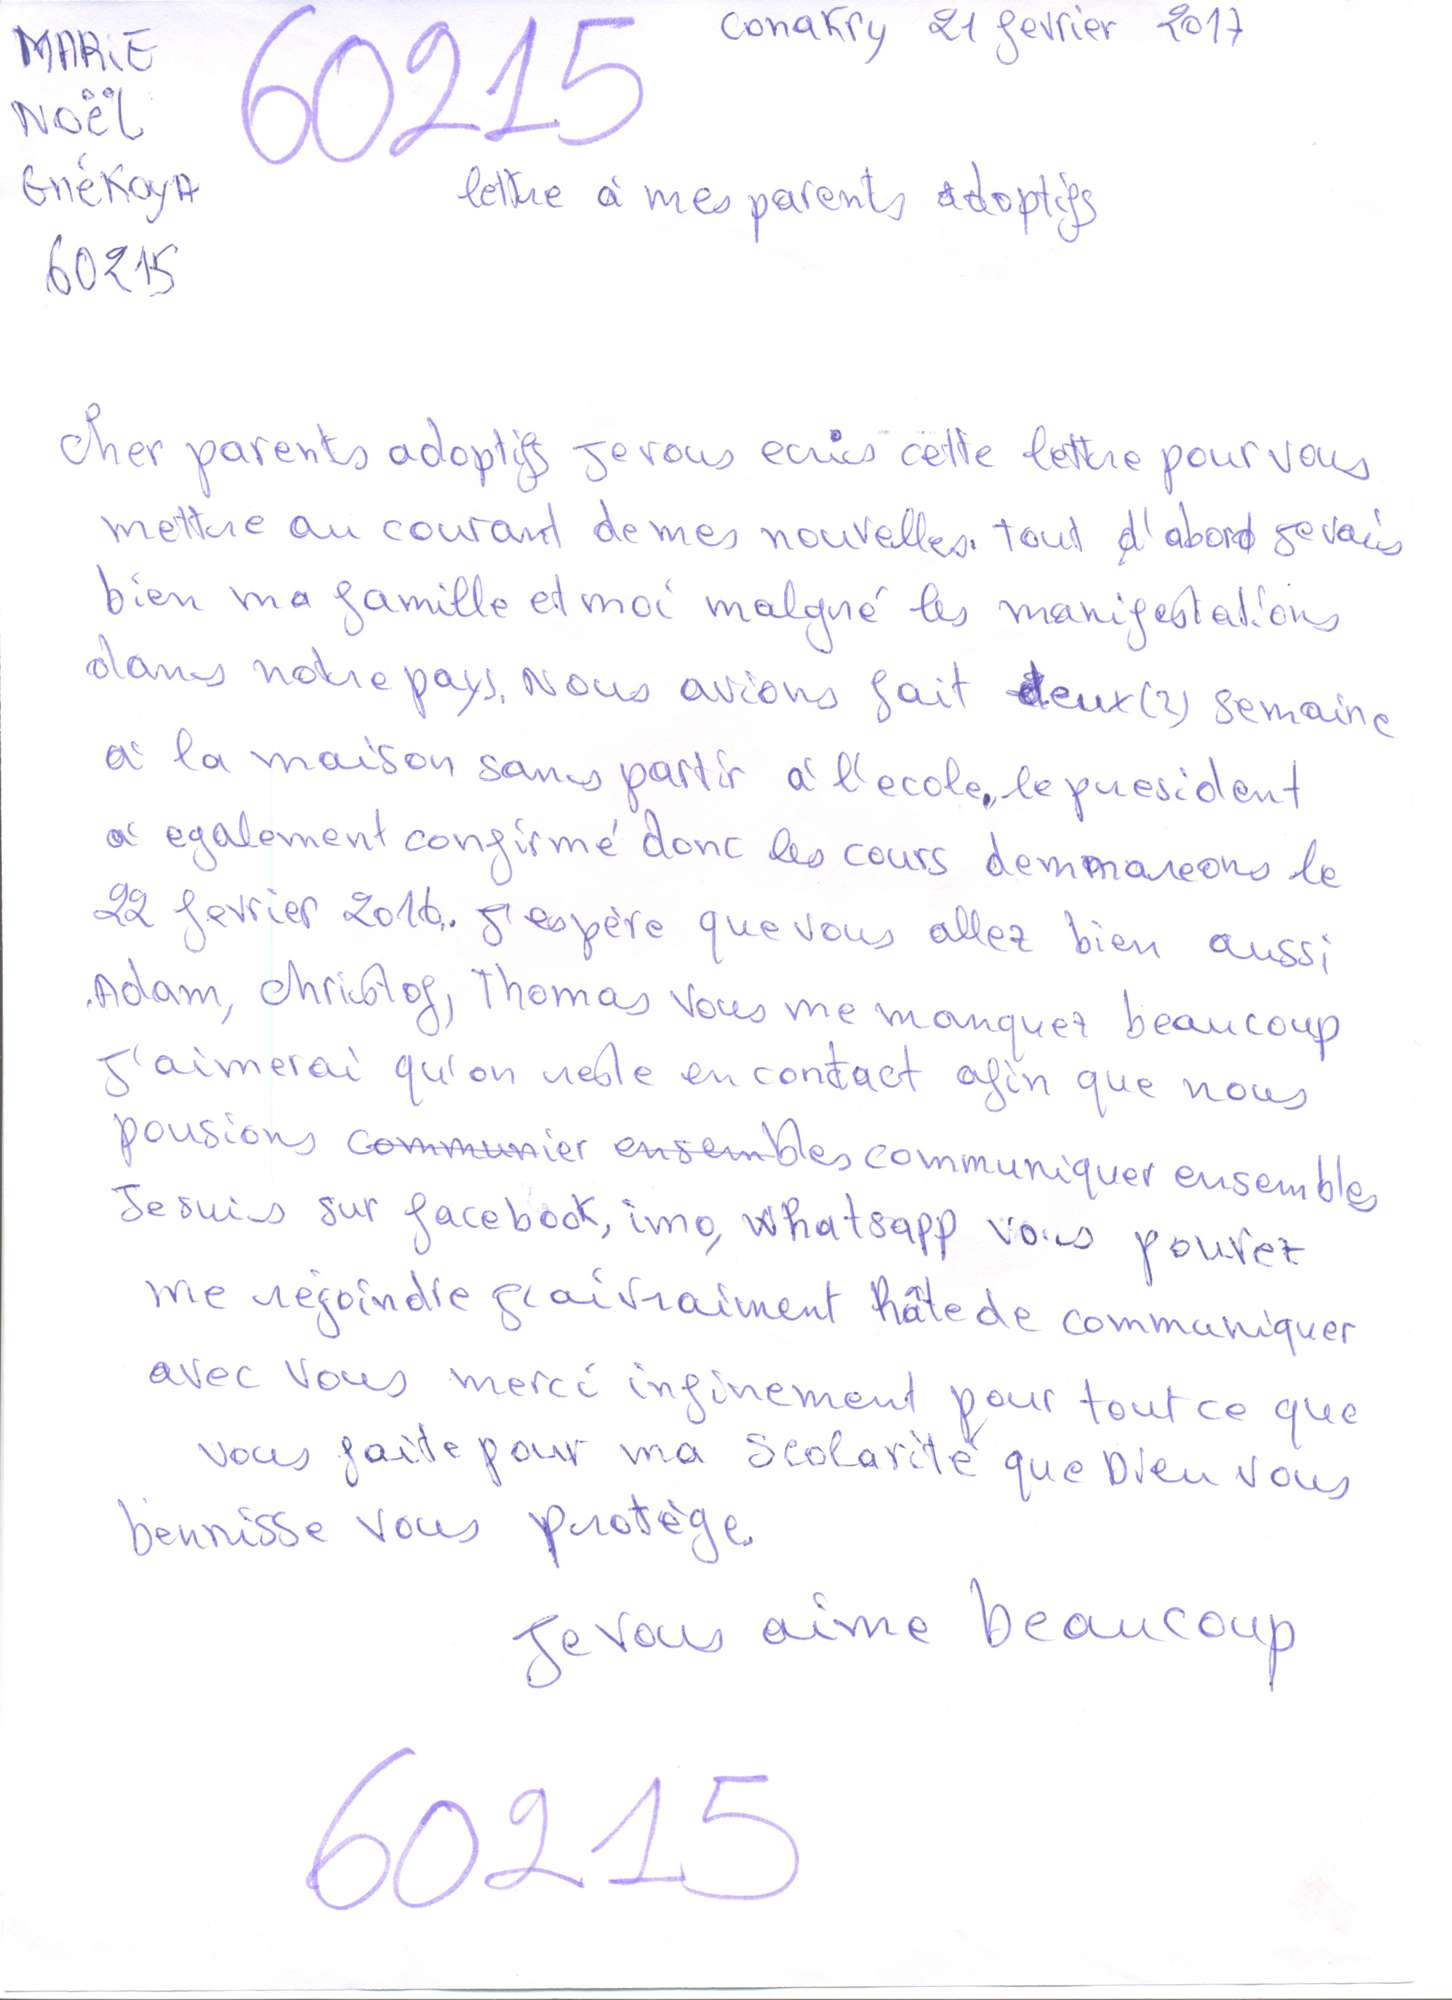 MARiE
Noël
GnéKoyA
60215
60215
Conakry 21 fevrier 2017
lettre à mes parents adoptifs
Cher parents adoptifs Je vous ecris cette lettre pour vous
mettre au courant de mes nouvelles. tout d'abord je vais
bien ma famille et moi malgré les manifestations
dans notre pays. Nous avions fait deux (2) semaine
à la maison sans partir à l'ecole, le president
à egalement confirmé donc les cours demmareons le
22 fevrier 2016. J'espère que vous allez bien aussi
Adam, christof, Thomas vous me manquez beaucoup
J'aimerai qu'on reste en contact afin que nous
pousions communier ensembles communiquer ensembles
Je suis sur facebook, imo, whatsapp vous pouvez
me rejoindre j'ai vraiment hâte de communiquer
avec vous merci infinement pour tout ce que
vous faite pour ma scolarité que Dieu vous
bennisse vous protège.
Je vous aime beaucoup
60215